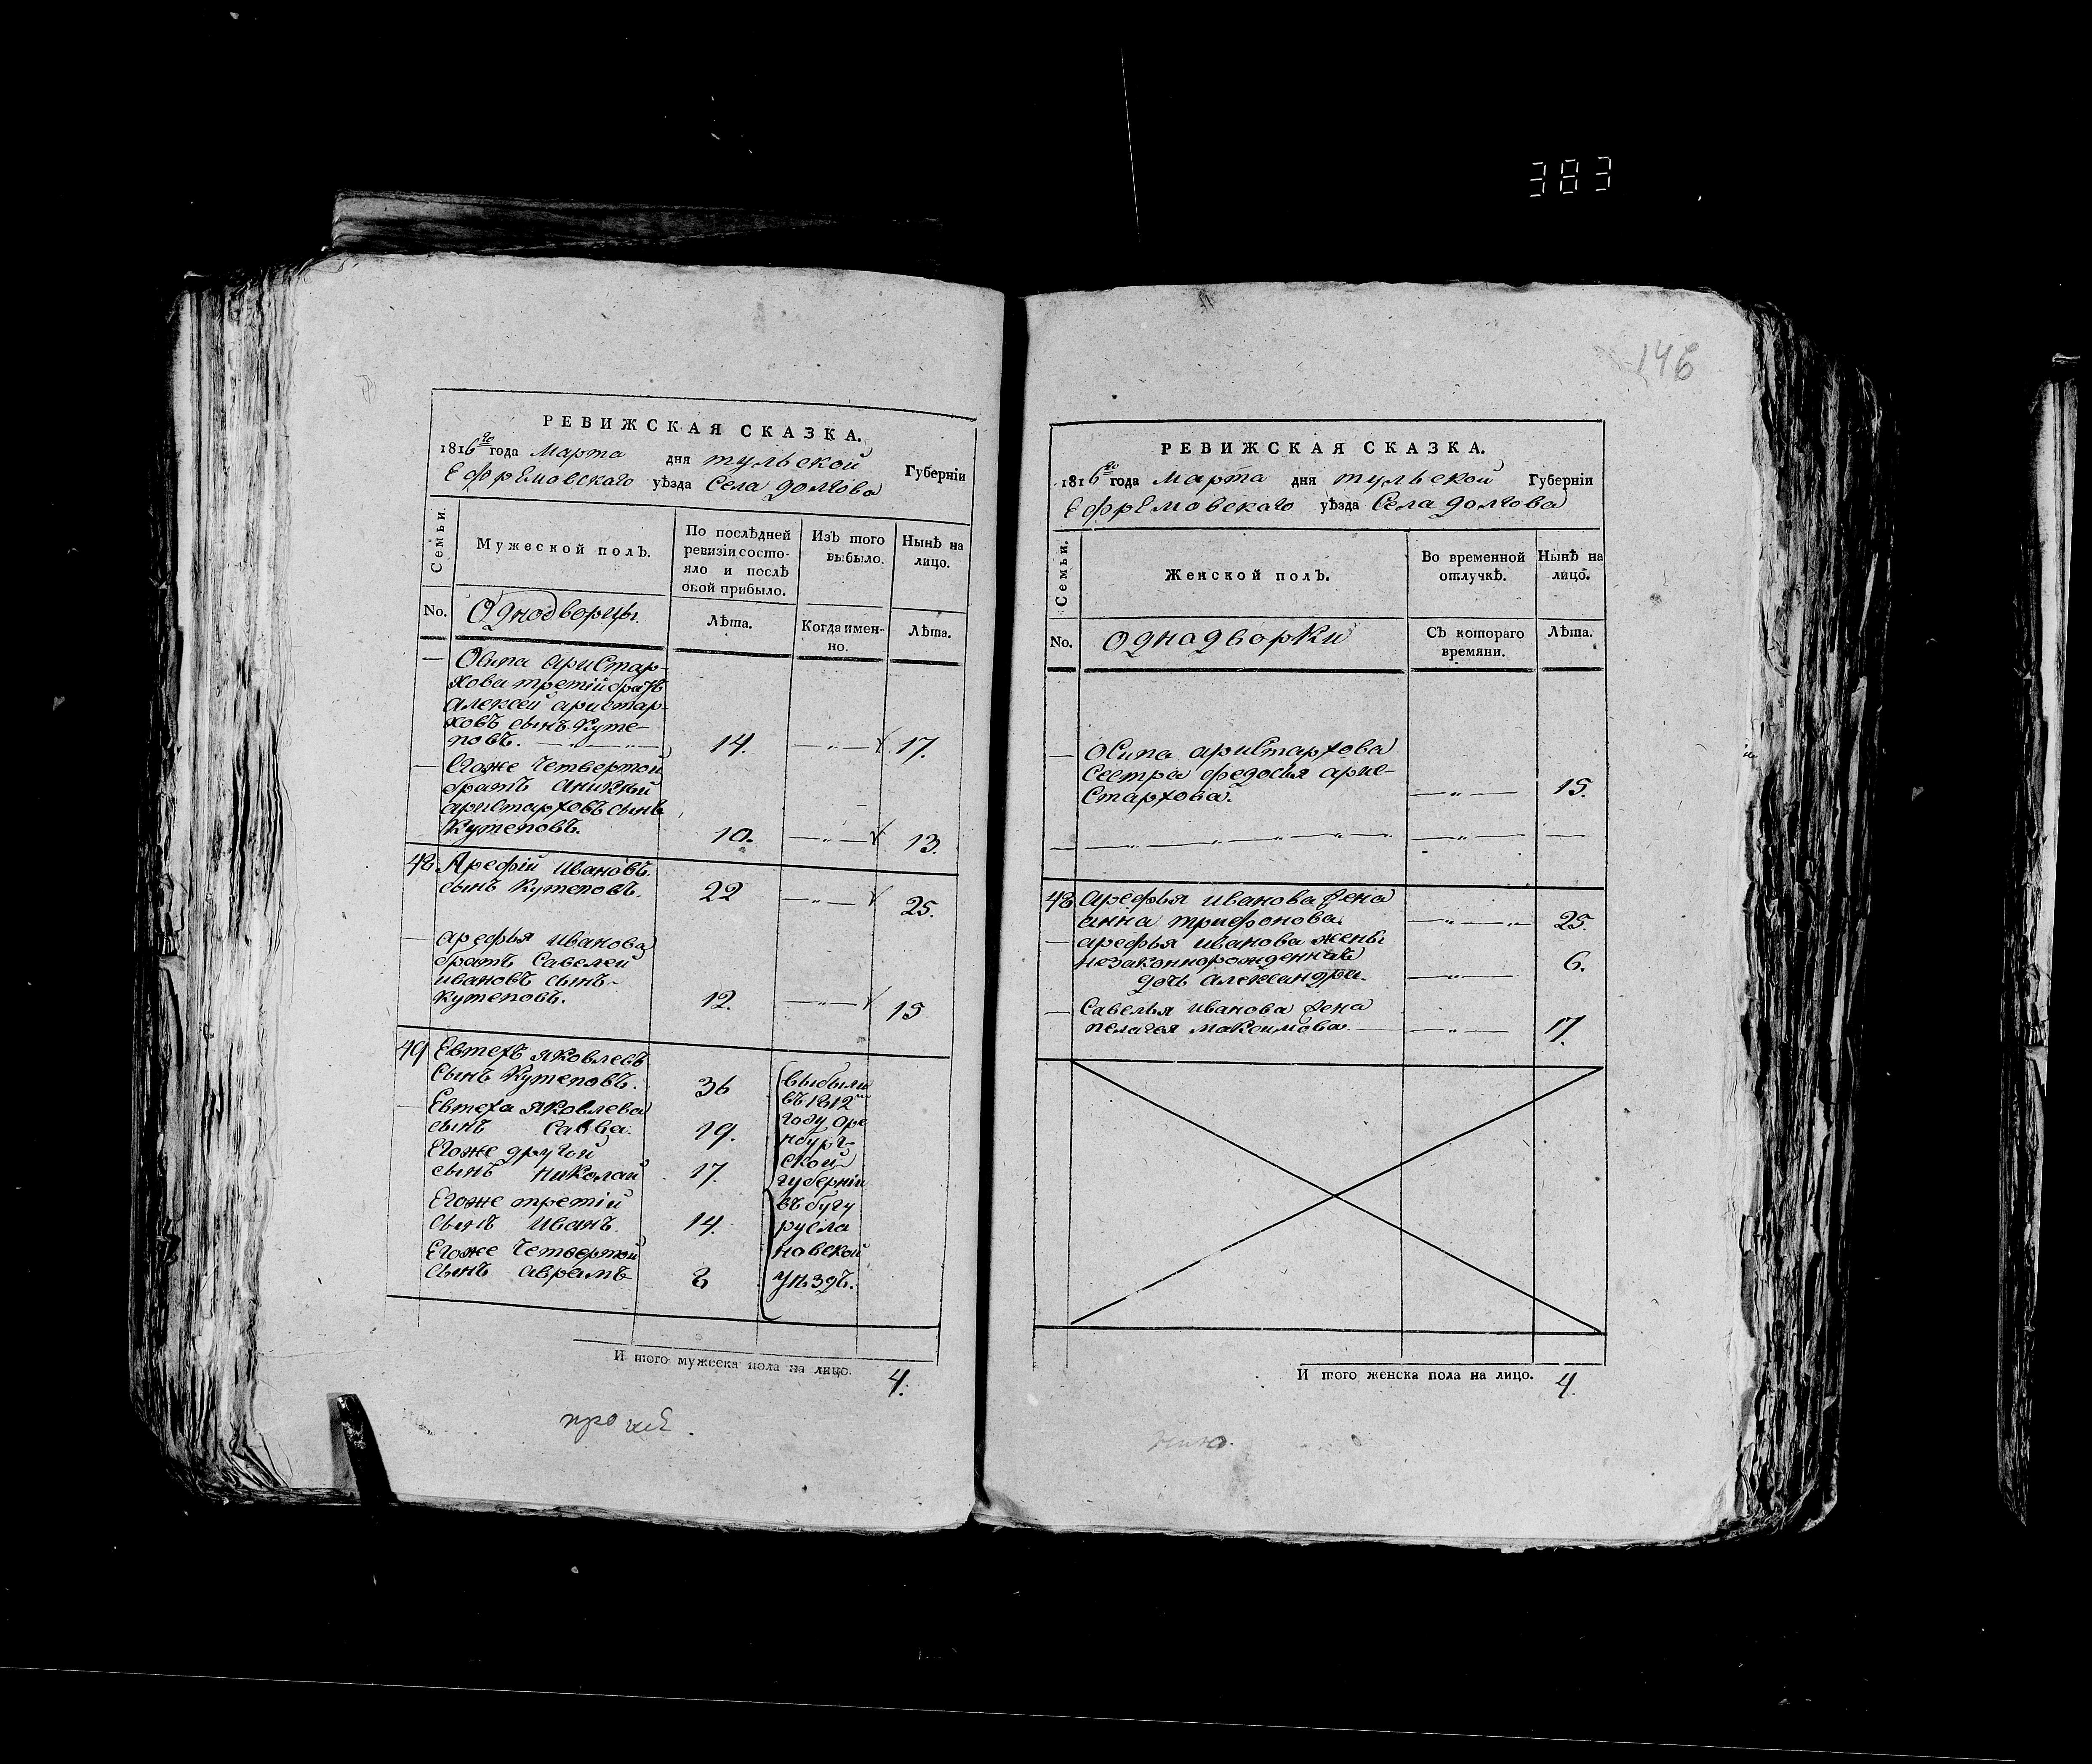 383
146
РЕВИЖСКАЯ СКАЗКА.
1816го года Марта дня тульской Губерніи
Ефремовскаго уѣзда Села долгова
Семьи.
Мужеской полъ.
По послѣдней ревизіи состо-
яло и послѣ
оной прибыло.
Изъ того
выбыло.
Нынѣ на
лицо.
No.
Однодворцы.
Лѣта.
Когда имен-
но.
Лѣта.
— Осипа аристар-
хова третій братъ
алексей аристар-
ховъ сынъ Куте-
повъ. 14. —„— 17.
— Егоже четвертой
братъ Аникий
аристарховъ сынъ
Кутеповъ. 10. —„— 13.
48 Арефій ивановъ
сынъ Кутеповъ. 22 —„— 25.
— арефья иванова
братъ Савелей
ивановъ сынъ
кутеповъ. 12. —„— 15
49 Евтехъ яковлевъ
Сынъ Кутеповъ. 36
— Евтеха яковлева
сынъ Савва. 19.
Егоже другой
сынъ николай 17.
Егоже третій
сынъ иванъ. 14.
Егоже четвертой
сынъ аврамъ 8
выбыли
въ 1812м
году оре
нбург-
ской
губерніи
въ бугу
русла
новской
уѣздъ.
И того мужеска пола на лицо. 4.
РЕВИЖСКАЯ СКАЗКА.
1816го года Марта дня тульской Губерніи
Ефремовскаго уѣзда Села долгова
Семьи.
Женской полъ.
Во временной
отлучкѣ.
Нынѣ на
лицо.
No.
однадворки
Съ котораго
времяни.
Лѣта.
— Осипа аристархова
Сестра федосья арис-
стархова. —„— 15.
— —„—„— —„— —
48 арефья иванова жена
анна трифонова. —„— 25.
— арефья иванова жены
незаконнорожденная 6.
дочь александра. —„—
— Савелья иванова жена
пелагея максимова —„— 17.
И того женска пола на лицо. 4.